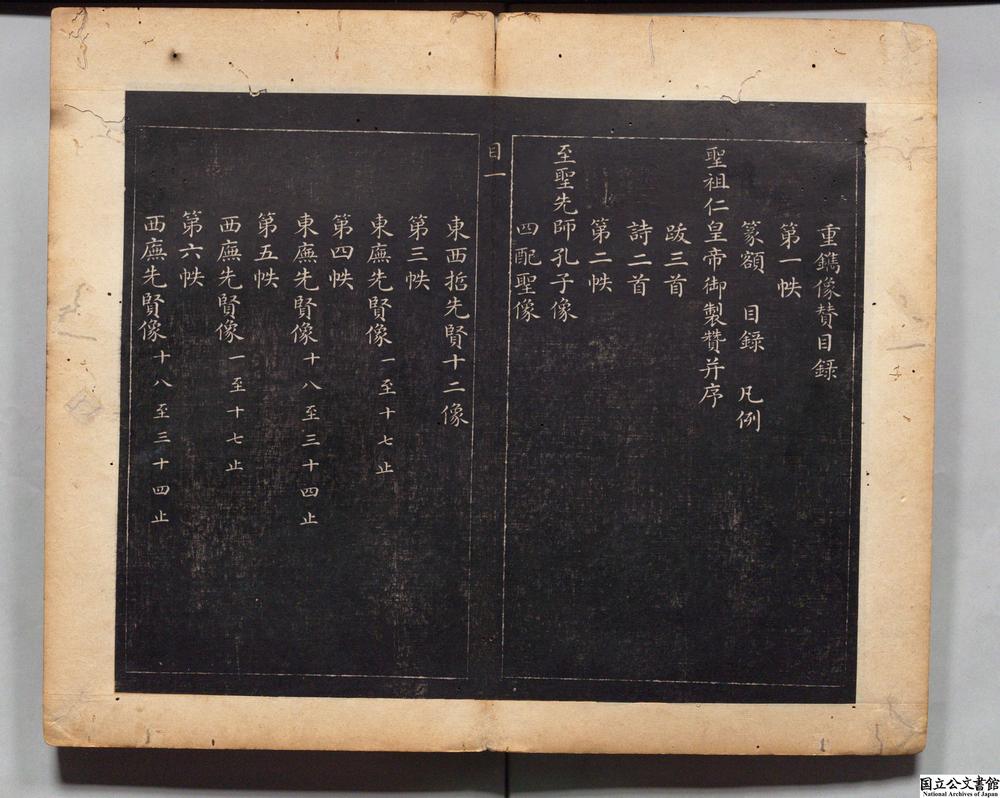 重鐫像賛目録
第一帙
篆額 目録 凡例
聖祖仁皇帝御製贊并序
跋三首
詩二首
第二帙
至聖先師孔子像
四配聖像
目一
東西哲先賢十二像
第三帙
東廡先賢像一至十七止
第四帙
東廡先賢像十八至三十四止
第五帙
西廡先賢像一至十七止
第六帙
西廡先賢像十八至三十四止
国立公文書館
National Archives of Japan